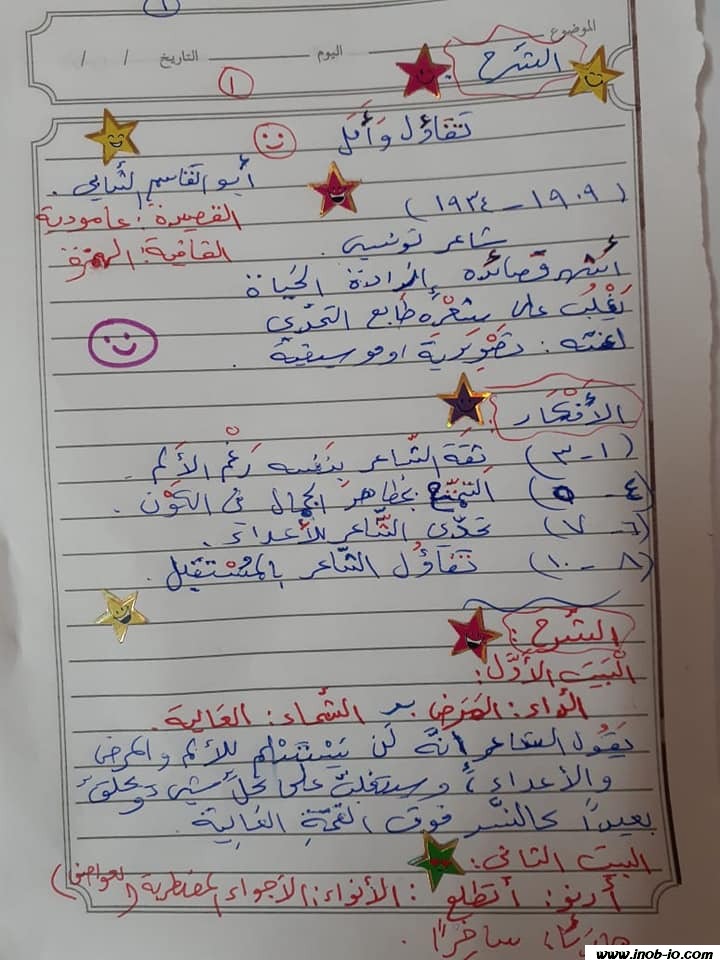 ١
الموضوع
اليوم
التاريخ / /
الشرح
١
تفاؤل وأمل
أبو القاسم الشابي.
(١٩٠٩ - ١٩٣٤)
القصيدة: عامودية
شاعر تونسي.
القافية: الهمزة
أشهر قصائده إرادة الحياة
يغلب على شعره طابع التحدي
لغته: تصويرية اوموسيقية.
الأفكار
(١-٣) ثقة الشاعر بنفسه رغم الألم.
(٤-٥) التمتع بمظاهر الجمال في الكون.
(٦-٧) تحدي الشاعر للأعداء.
(٨-١٠) تفاؤل الشاعر بالمستقبل.
الشرح:
البيت الأول:
الداء: المرض الشماء: العالية.
يقول الشاعر أنه لن يستسلم للألم والمرض
والأعداء، وسيتغلب على كل شيء ويحلق
بعيداً كالنسر فوق القمة العالية.
البيت الثاني:
أرنو: أتطلع الأنواء: الأجواء المضطربة (العواصف)
هازئاً: ساخراً.
www.inob-io.com